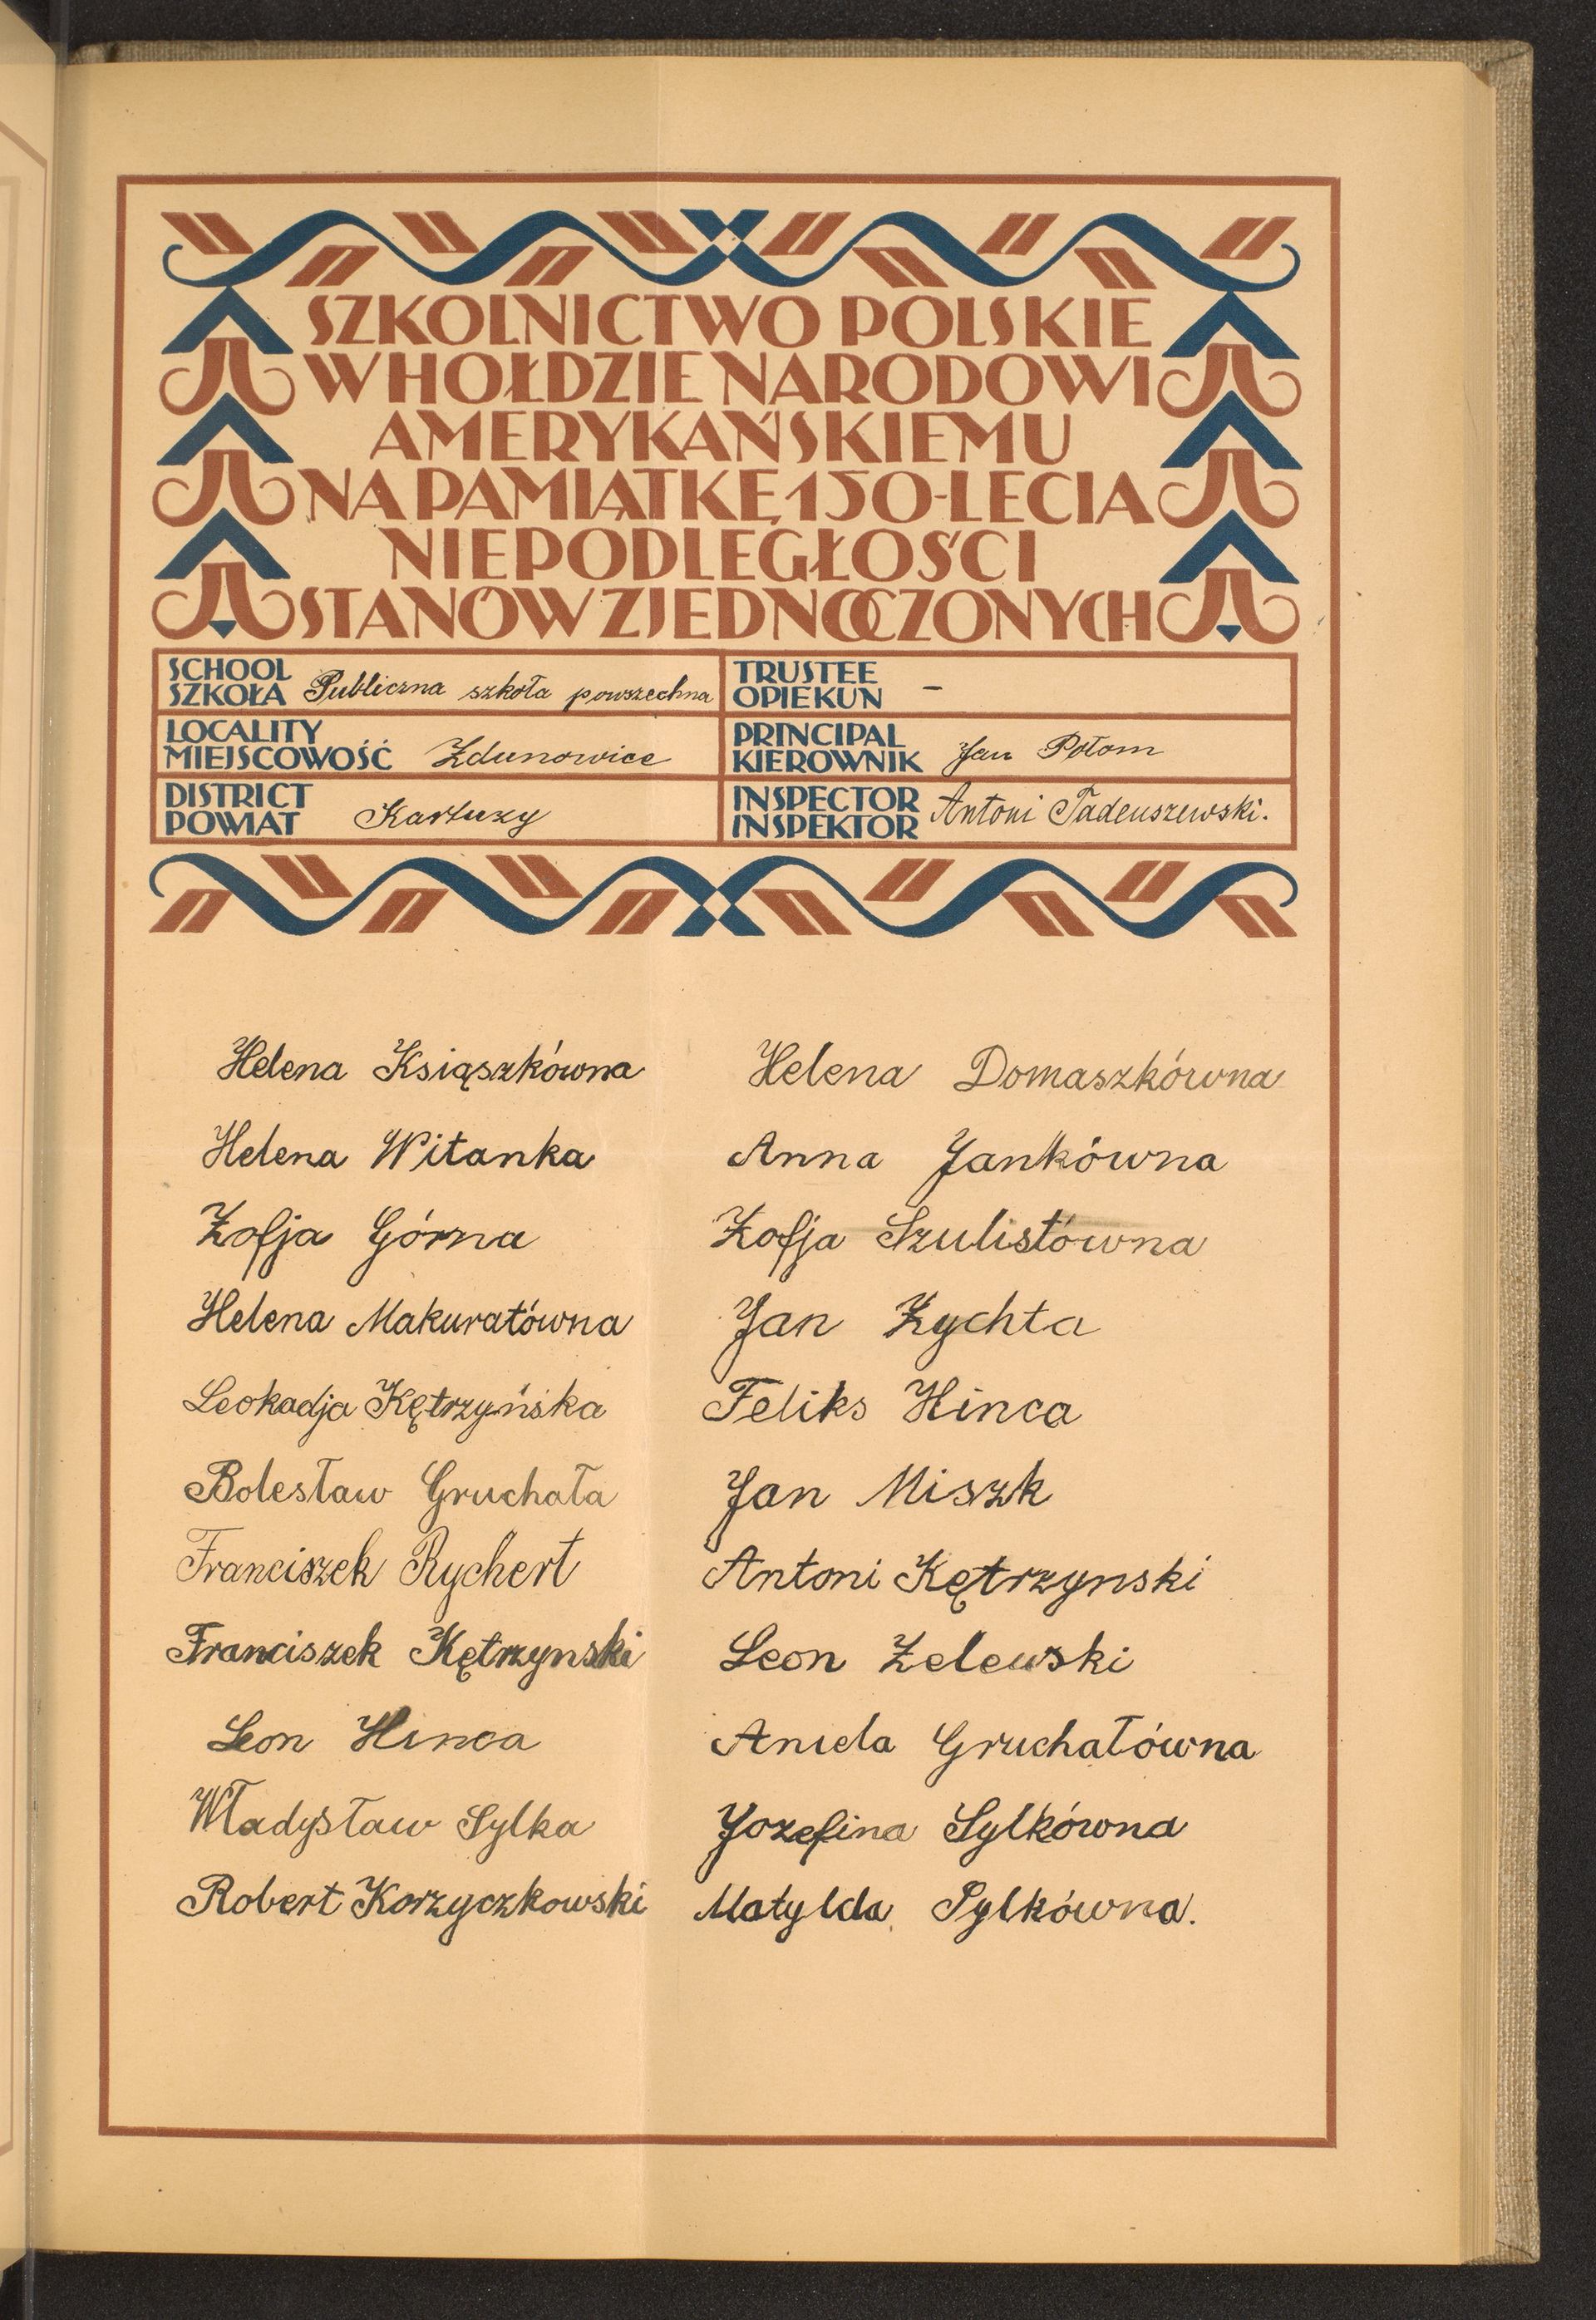 SZKOLNICTWO POLSKIE
W HOŁDZIE NARODOWI
AMERYKAŃSKIEMU
NA PAMIĄTKĘ 150-LECIA
NIEPODLEGŁOŚCI
STANÓW ZJEDNOCZONYCH
SCHOOL
SZKOŁA Publiczna szkoła powszechna
TRUSTEE
OPIEKUN –
LOCALITY
MIEJSCOWOŚĆ Zdunowice
PRINCIPAL
KIEROWNIK Jan Połom
DISTRICT
POWIAT Kartuzy
INSPECTOR
INSPEKTOR Antoni Tadeuszewski.
Helena Książkówna
Helena Witanka
Zofja Górna
Helena Makuratówna
Leokadja Kętrzyńska
Bolesław Gruchała
Franciszek Rychert
Franciszek Kętrzynski
Leon Hinca
Władysław Sylka
Robert Korzyczkowski
Helena Domaszkówna
Anna Jankówna
Zofja Szulistówna
Jan Zychta
Feliks Hinca
Jan Miszk
Antoni Kętrzynski
Leon Zelewski
Aniela Gruchałówna
Jozefina Sylkówna
Matylda Sylkówna.